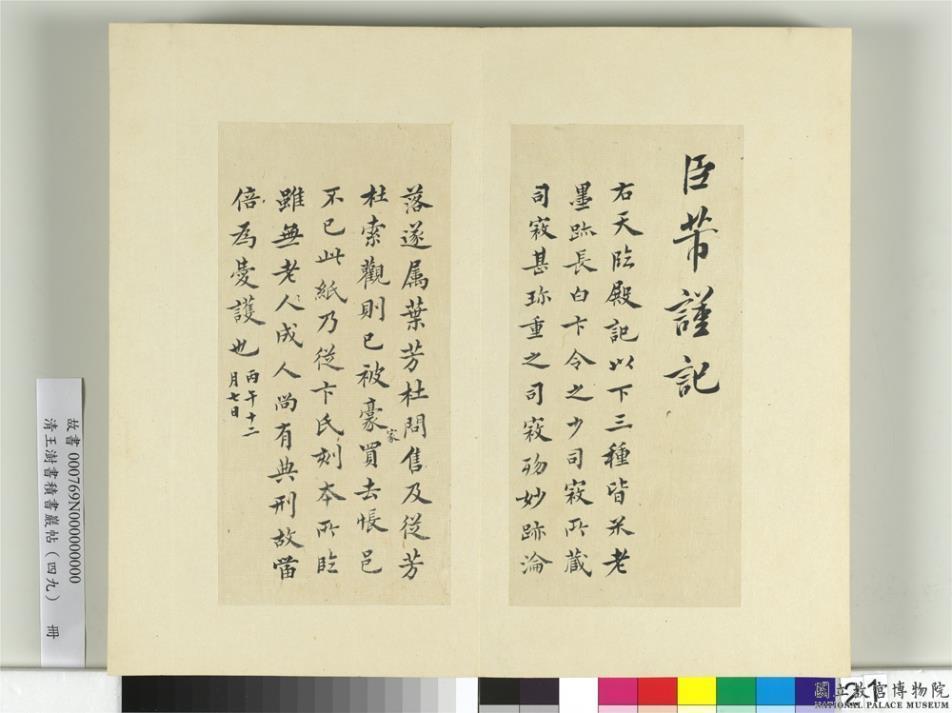 臣芾謹記
右天臨殿記以下三種皆米老
墨跡長白卞令之少司寇所藏
司寇甚珍重之司寇歿妙跡淪
落遂属葉芳杜問售及從芳
杜索觀則已被豪家買去悵邑
不已此紙乃從卞氏刻本所臨
雖無老人成人尚有典刑故當
倍為愛護也丙午十二
月七日
故書 000769N000000000
清王澍書積書巖帖(四九) 冊
21
國立故宮博物院
NATIONAL PALACE MUSEUM